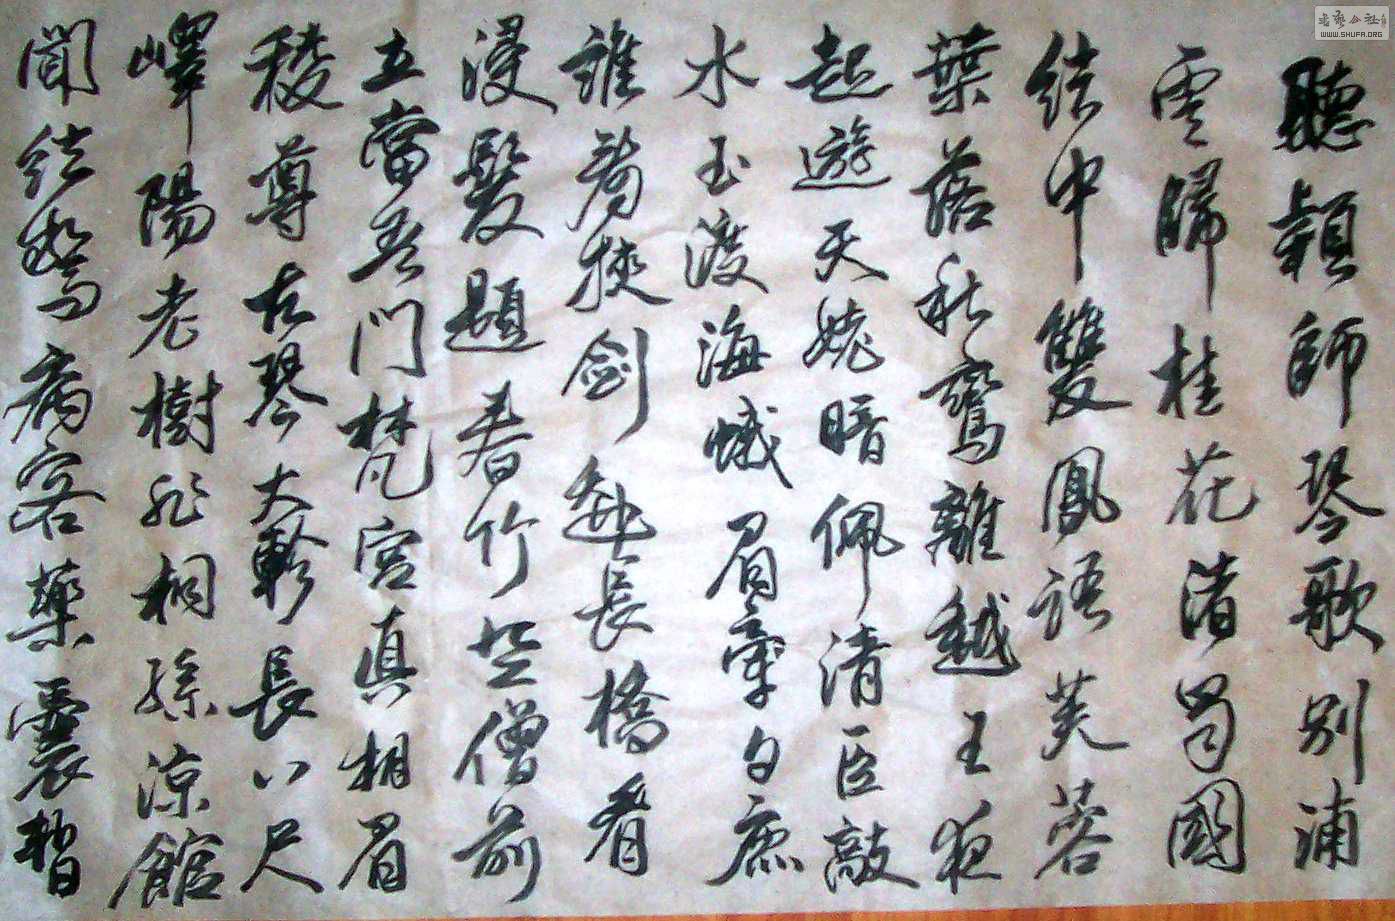 聽穎師琴歌別浦
雲歸桂花渚蜀國
絃中雙鳳語芙蓉
葉落秋鸞離越王夜
起遊天姥暗佩清臣敲
水玉渡海蛾眉牽白鹿
誰看挾劍赴長橋看
浸髮題春竹竺僧前
立當吾門梵宮真相眉
稜尊古琴大軫長八尺
嶧陽老樹非桐孫涼館
聞絃驚病客藥囊暫
WWW.SHUFA.ORG